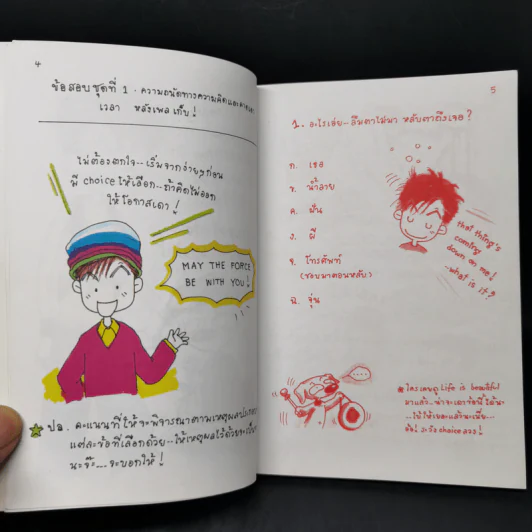 4
ข้อสอบชุดที่ 1 . ความถนัดทางความคิดและ
เวลา หลังเพลเก็บ !
ไม่ต้องตกใจ...เริ่มจากง่ายๆก่อน
มี choice ให้เลือก...ถ้าคิดไม่ออก
ให้โอกาสเดา !
MAY THE FORCE
BE WITH YOU !
ปล . คะแนนที่ให้จะพิจารณาตามเหตุผล
แต่ละข้อที่เลือกด้วย...ให้เหตุผลไว้ด้วย
นะจ๊ะ....จะบอกให้ !
5
1. อะไรเอ่ย...ลืมตาไม่มา หลับตาถึงเจอ ?
ก. เธอ
ข. น้ำลาย
ค. ฝัน
ง. ผี
จ. โทรศัพท์
(ชอบมาตอนหลับ)
ฉ. จุ่น
that thing's
coming
down on me!
..what is it?
ใครเคยดู Life is beautiful
มาแล้ว..น่าจะเดาข้อนี้ได้นะ